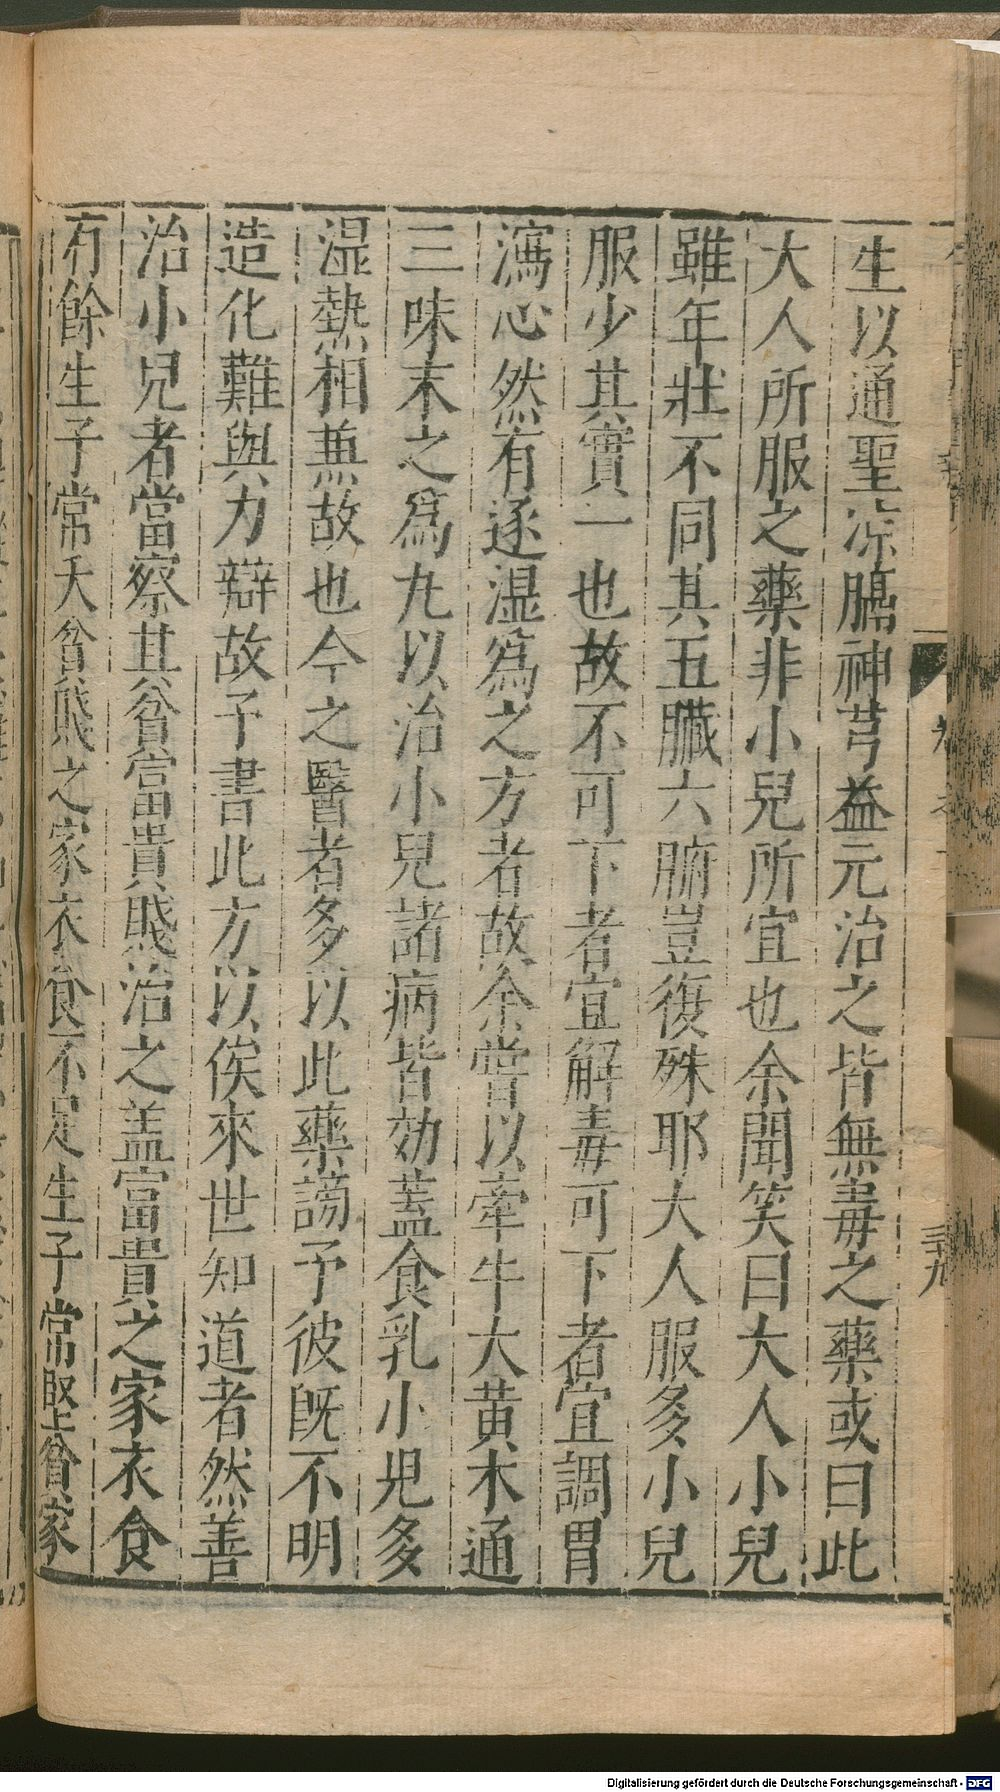 生以通聖涼膈神芎益元治之皆無毒之藥或曰此
大人所服之藥非小兒所宜也余聞笑曰大人小兒
雖年壯不同其五臟六腑豈復殊耶大人服多小兒
服少其實一也故不可下者宜解毒可下者宜調胃
瀉心然有逐湿爲之方者故余嘗以牽牛大黄木通
三味末之爲丸以治小兒諸病皆効蓋食乳小児多
湿熱相兼故也今之醫者多以此藥謗予彼旣不明
造化難與力辯故予書此方以俟來世知道者然善
治小兒者當察其貧富貴賤治之盖富貴之家衣食
有餘生子常夭貧賤之家衣食不足生子常堅貧家
三十九
Digitalisierung gefördert durch die Deutsche Forschungsgemeinschaft - DFG